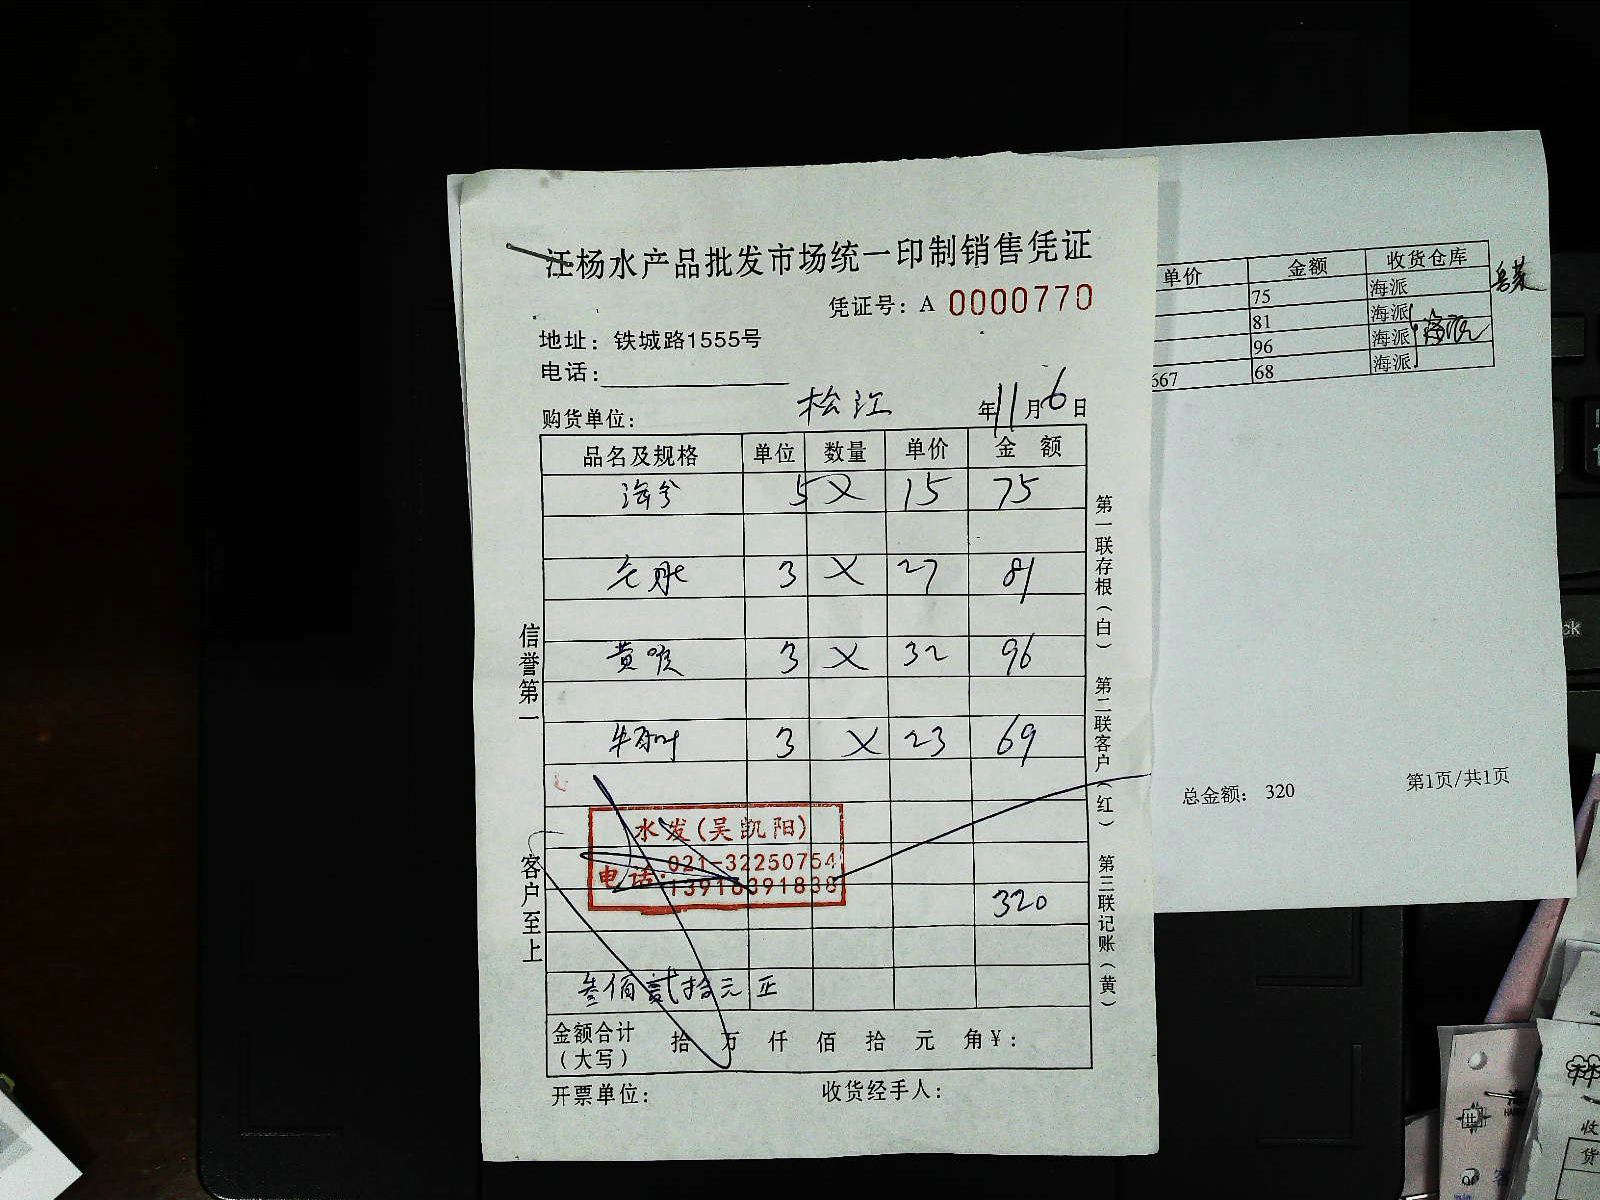 汪杨水产品批发市场统一印制销售凭证
凭证号：A 0000770
地址：铁城路1555号
电话：
购货单位： 松江 年11月6日
品名及规格 单位 数量 单价 金 额
5 X 15 75
3 X 27 81
黄喉 3 X 32 96
3 X 23 69
水发(吴凯阳)
电话：021-32250754
13916391838
320
叁佰贰拾元正
金额合计（大写） 拾 万 仟 佰 拾 元 角 ¥：
开票单位： 收货经手人：
信誉第一
客户至上
第一联存根（白） 第二联客户（红） 第三联记账（黄）
单价 金额 收货仓库
75 海派
81 海派
96 海派
667 68 海派
海派
总金额： 320 第1页/共1页